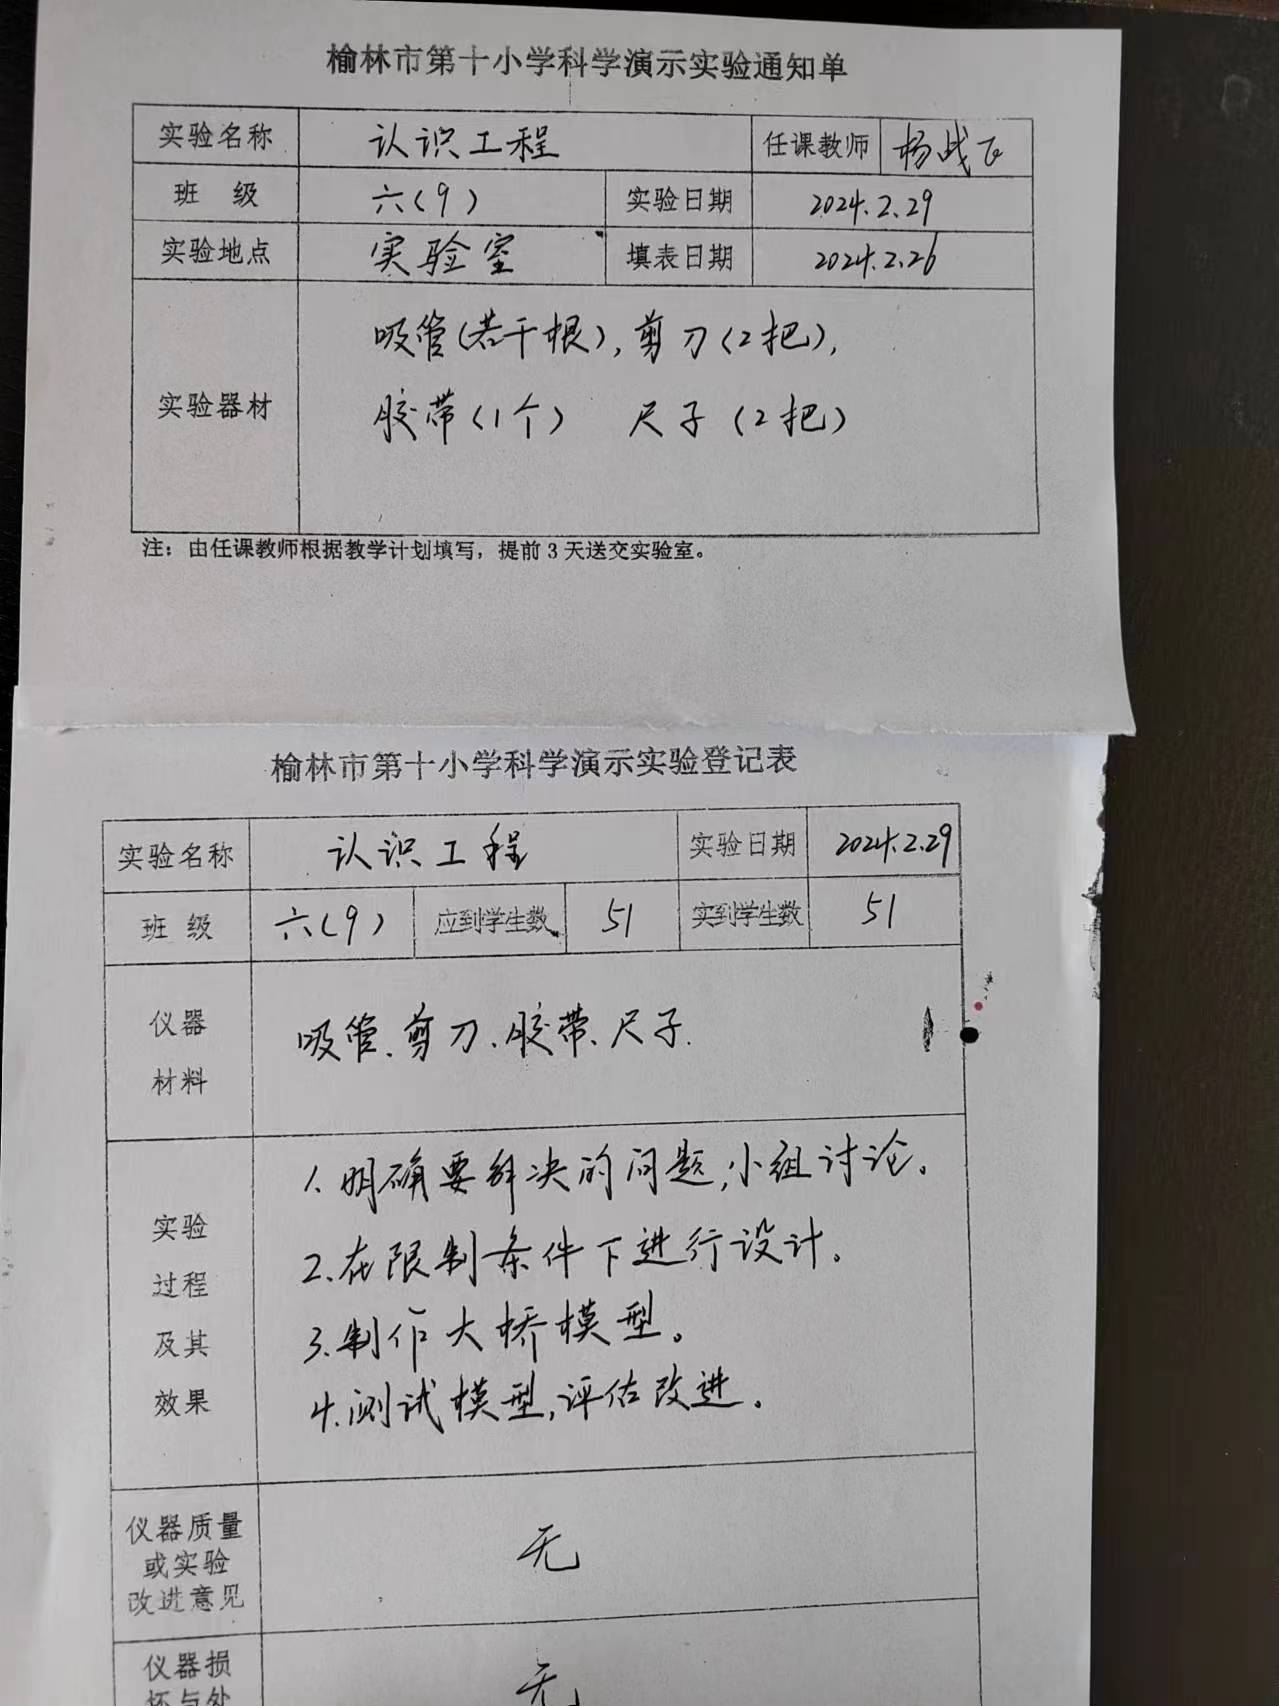 榆林市第十小学科学演示实验通知单
实验名称 认识工程 任课教师 杨战飞
班 级 六(9) 实验日期 2024.2.29
实验地点 实验室 填表日期 2024.2.26
实验器材 吸管(若干根),剪刀(2把),
胶带(1个) 尺子(2把)
注:由任课教师根据教学计划填写,提前3天送交实验室。
榆林市第十小学科学演示实验登记表
实验名称 认识工程 实验日期 2024.2.29
班 级 六(9) 应到学生数 51 实到学生数 51
仪器
材料
吸管、剪刀、胶带、尺子.
实验
过程
及其
效果
1.明确要解决的问题,小组讨论。
2.在限制条件下进行设计。
3.制作大桥模型。
4.测试模型,评估改进。
仪器质量
或实验
改进意见
无
仪器损
坏与处
无